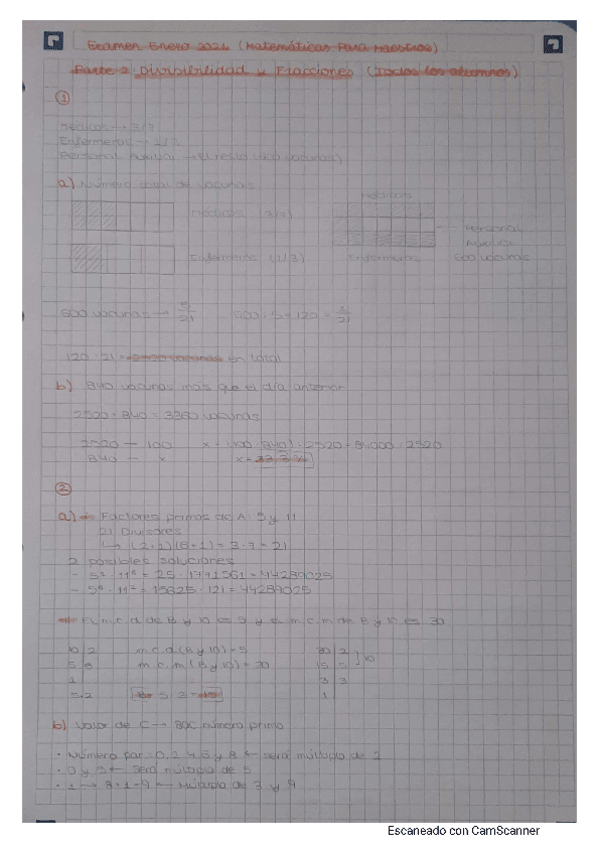 Examen Enero 2024 (Matemáticas Para Maestros)
Parte 2: Divisibilidad y Fracciones (Todos los alumnos)
1
Médicos → 3/7
Enfermeros → 1/3
Personal Auxiliar → El resto (600 vacunas)
a) Número total de vacunas
Médicos (3/7)
Médicos
Personal
Auxiliar
Enfermeros (1/3)
Enfermeros
600 vacunas
600 vacunas → 5/21
600 : 5 = 120 = 1/21
120 · 21 = en total
b) 840 vacunas más que el día anterior
2520 + 840 = 3360 vacunas
2520 — 100
x = (100 · 840) : 2520 = 84000 : 2520
840 — x
x = 33,3 %
2
a) → Factores primos de A: 5 y 11
21 Divisores
↳ (2+1)(6+1) = 3 · 7 = 21
2 posibles soluciones
- 5² · 11⁶ = 25 · 1771561 = 44289025
- 5⁶ · 11² = 15625 · 121 =
→ El m.c.d de B y 10 es 5 y el m.c.m de B y 10 es 30
10 2
m.c.d (B y 10) = 5
30 2
5 5
m.c.m (B y 10) = 30
15 5
10
1
3 3
5 · 2
1
b) Valor de C → 89C número primo
· Número par: 0, 2, 4, 6 y 8 ← será múltiplo de 2
· 0 y 5 ← será múltiplo de 5
· 1 → 8+1=9 ← Múltiplo de 3 y 9
Escaneado con CamScanner